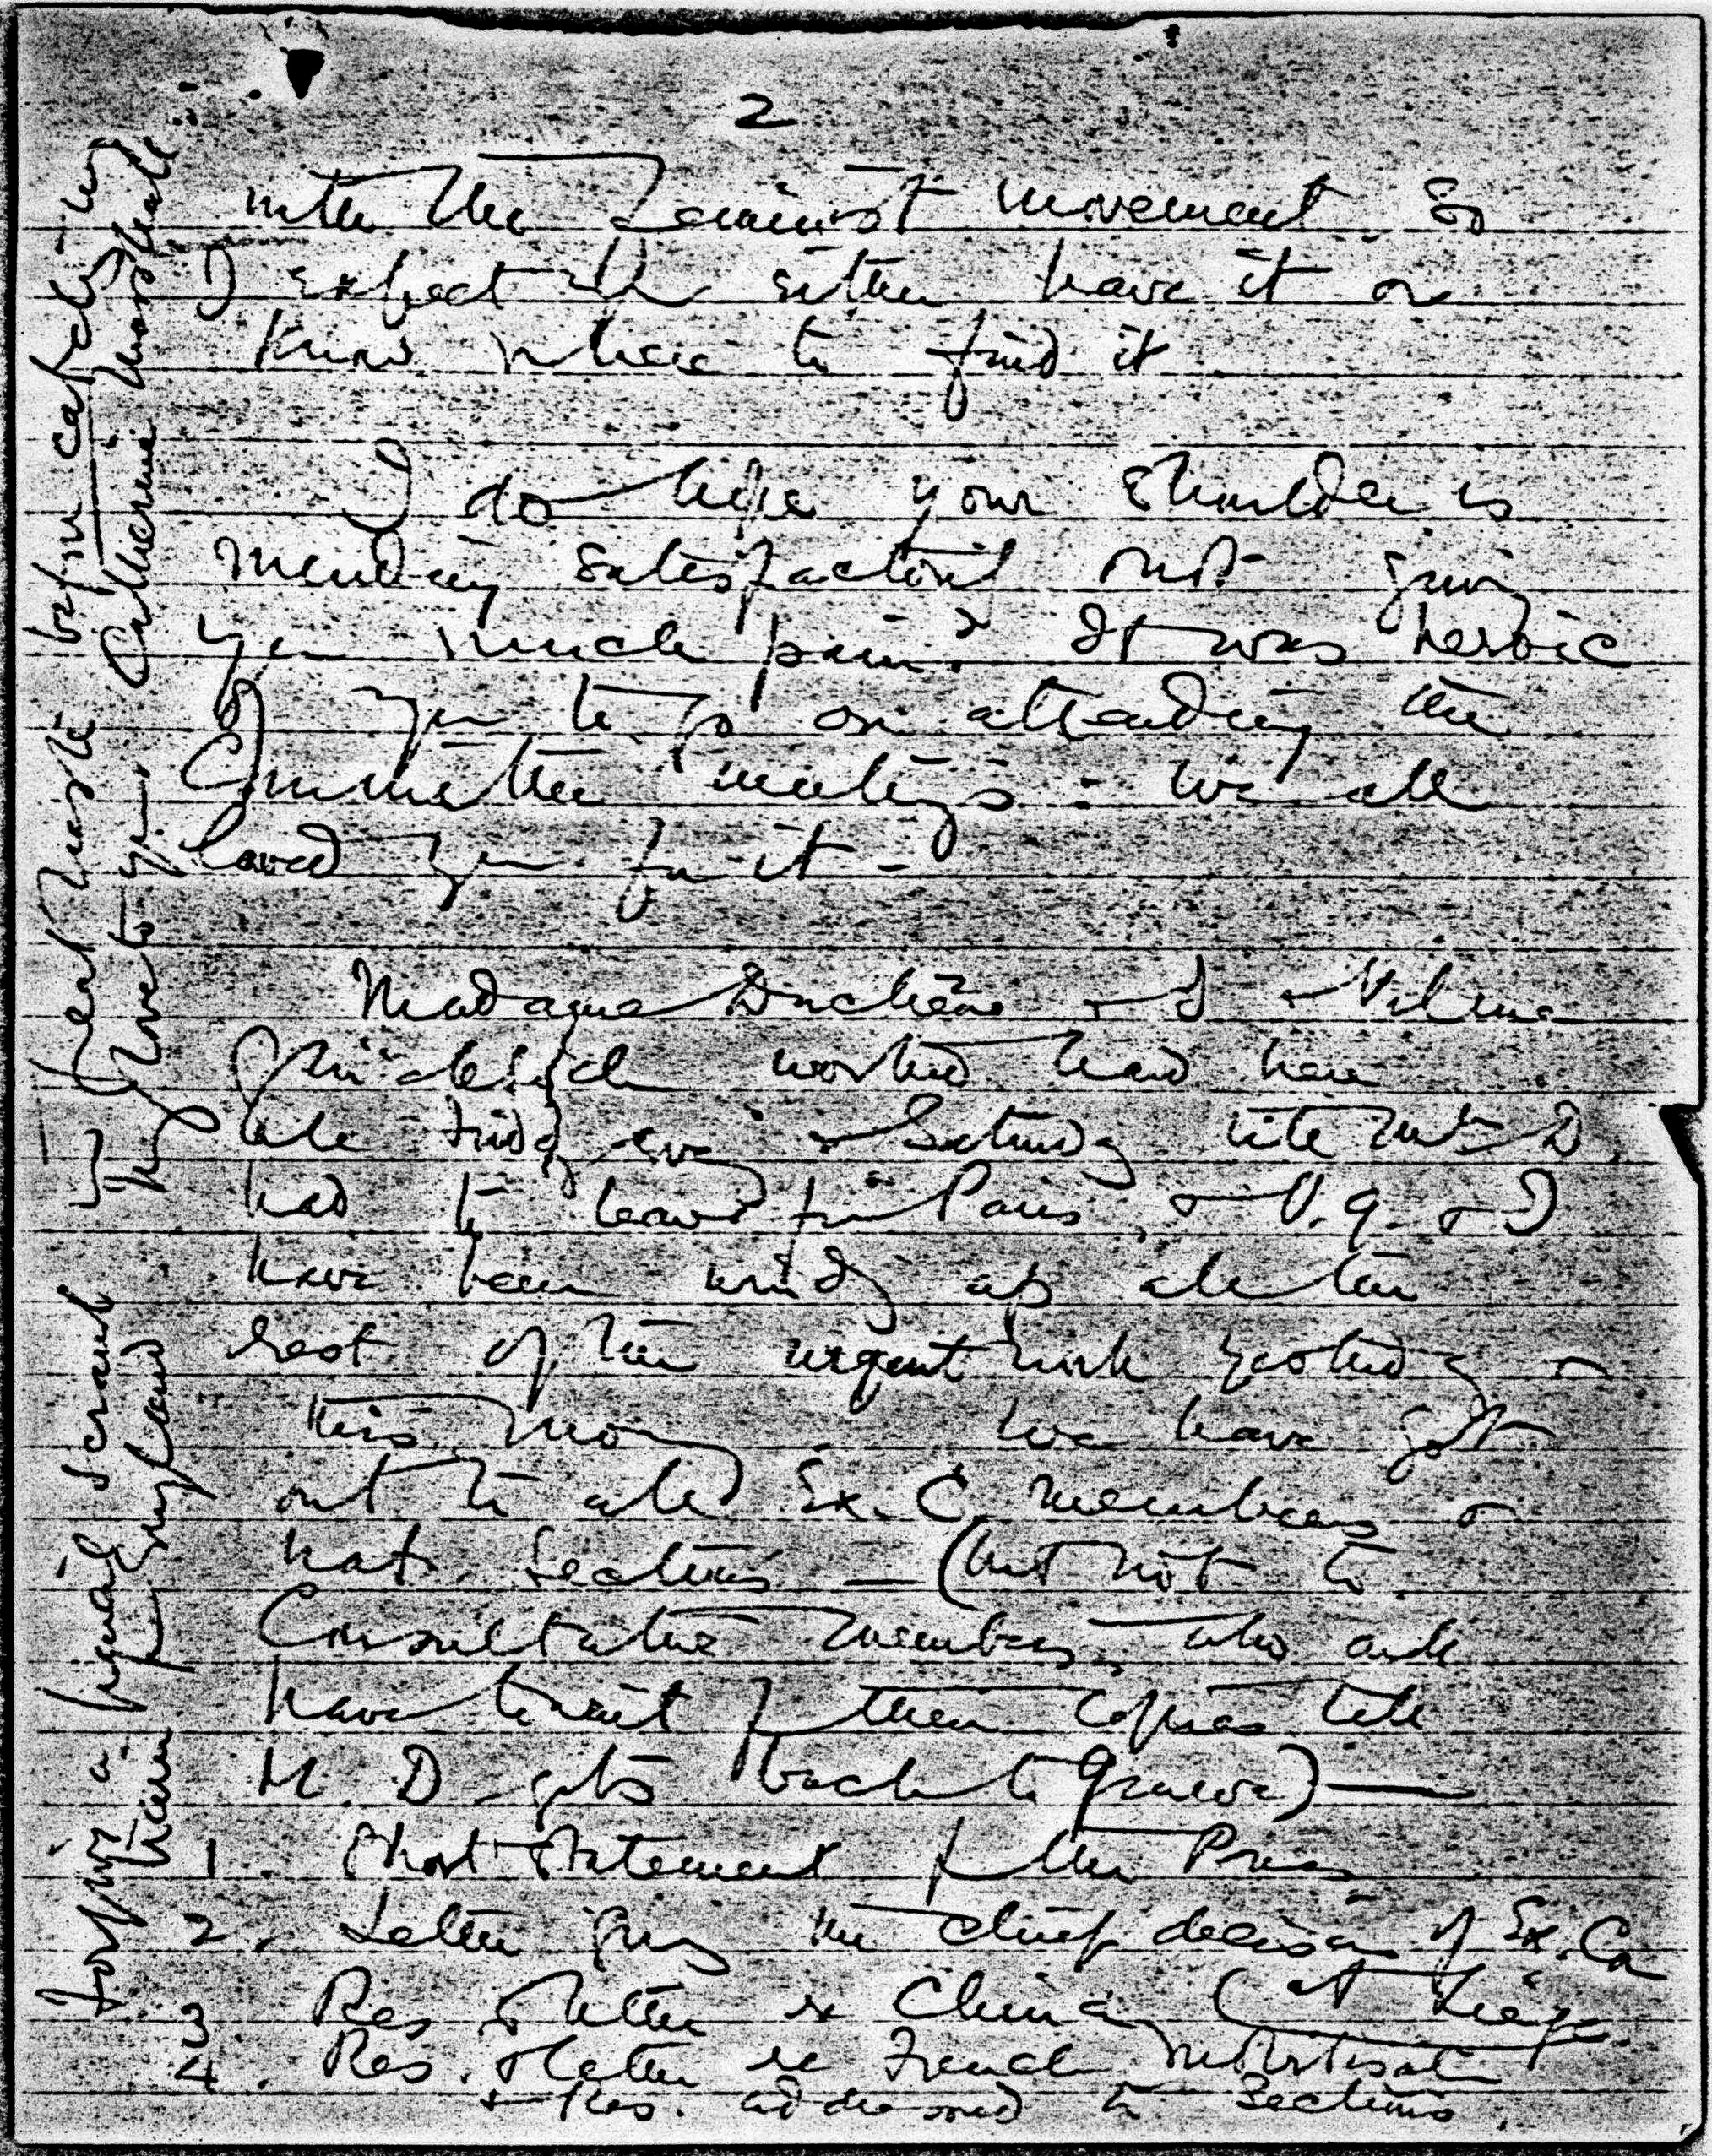 2
with the Feminist movement. So
I expect she'll either have it or
know where to find it
I do hope your shoulder is
mending satisfactorily & not giving
you much pain? It was heroic
of you to go on attending the
Committee meetings: we all
loved you for it -
Madame Duchêne & I & Vilma
Glücklich worked hard here
all Friday evg & Saturday till Me D.
had to leave for Paris, & V.G. & I
have been winding up all the
rest of the urgent work yesterday &
this morng. We have got
out to all Ex. C. members &
Nat. Sections — (but not to
Consultative members, who will
have to wait for their copies till
M. D gets back to Geneva) —
1. Short Statement for the Press
2. Letter giving the chief decisions of Ex. Co
3. Res & letter re China (at Liège
4. Res. & letter re French
& Res. addressed to Sections.
Forgive a pencil scrawl in great haste before catching my
train for England. My love to you, Catherine Marshall